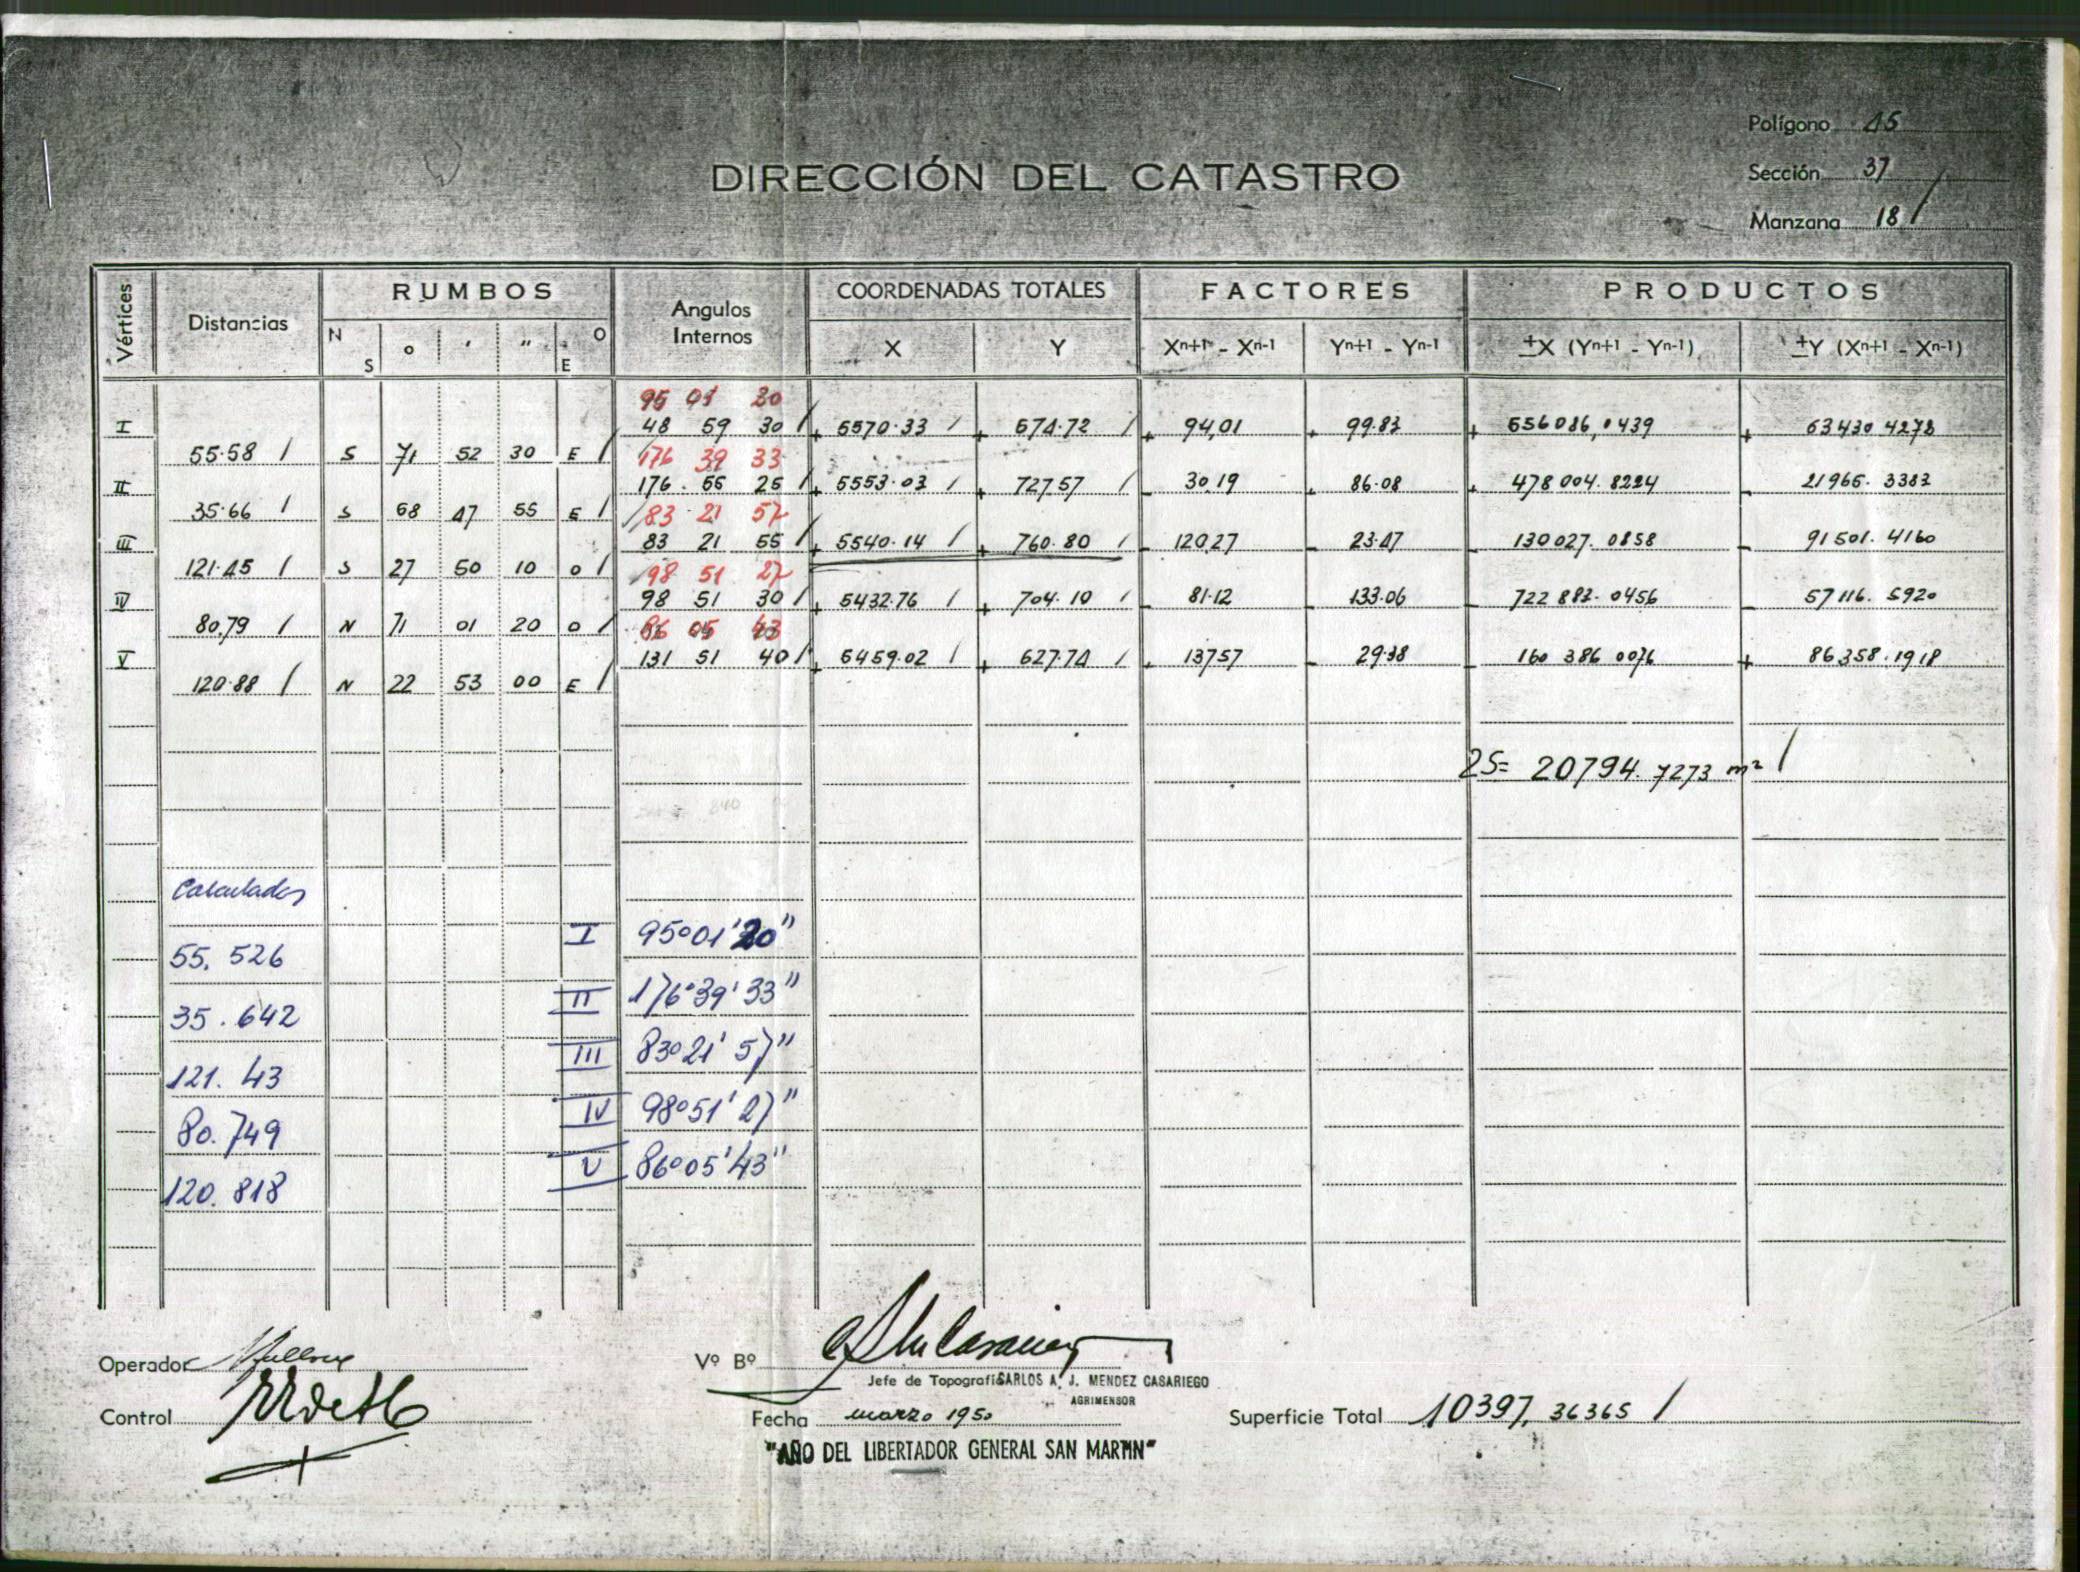 Polígono 45
DIRECCIÓN DEL CATASTRO
Sección 37
Manzana 18 /
Vértices Distancias RUMBOS N S o ' " O E Angulos Internos COORDENADAS TOTALES X Y FACTORES Xn+1 - Xn-1 Yn+1 - Yn-1 PRODUCTOS ±X (Yn+1 - Yn-1) ±Y (Xn+1 - Xn-1)
95 01 20
I 48 59 30 / + 5570.33 / + 674.72 / + 94,01 + 99.83 + 556086,0439 + 63430 4278
55.58 / S 71 52 30 E / 176 39 33
II 176 55 25 / + 5553.03 / + 727.57 / - 30.19 + 86.08 + 478004.8224 - 21965.3383
35.66 / S 68 47 55 E / 83 21 57
III 83 21 55 / + 5540.14 / + 760.80 / - 120.27 - 23.47 - 130027.0858 - 91501.4160
121.45 / S 27 50 10 O / 98 51 27
IV 98 51 30 / + 5432.76 / + 704.10 / - 81.12 - 133.06 - 722883.0456 - 57116.5920
80.79 / N 71 01 20 O / 86 05 43
V 131 51 40 / + 5459.02 / + 627.74 / + 137.57 - 29.38 - 160386 0076 + 86358.1918
120.88 / N 22 53 00 E /
2S= 20794.7273 m² /
Calculados
I 95º01'20"
55.526
II 176º39'33"
35.642
III 83º21'57"
121.43
IV 98º51'27"
80.749
V 86º05'43"
120.818
Operador
Vº Bº
Jefe de Topografía CARLOS A. J. MENDEZ CASARIEGO
AGRIMENSOR
Control
Fecha marzo 1950
Superficie Total 10397,36365 /
"AÑO DEL LIBERTADOR GENERAL SAN MARTIN"